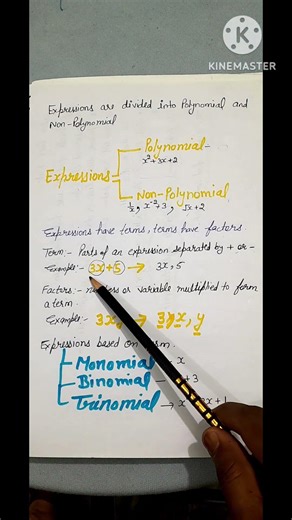 MADE WITH
KINEMASTER
Expressions are divided into Polynomial and
Non-Polynomial
Polynomial-
x²+3x+2
Expressions
Non-Polynomial
1/x, x^-2+3, √x+2
Expressions have terms, terms have factors.
Term:- Parts of an expression separated by + or -
Example:- 3x+5 → 3x, 5
Factors:- numbers or variable multiplied to form
a term.
Example:- 3x → 3, x, y
Expressions based on
Monomial x
Binomial + 3
Trinomial → x + 1